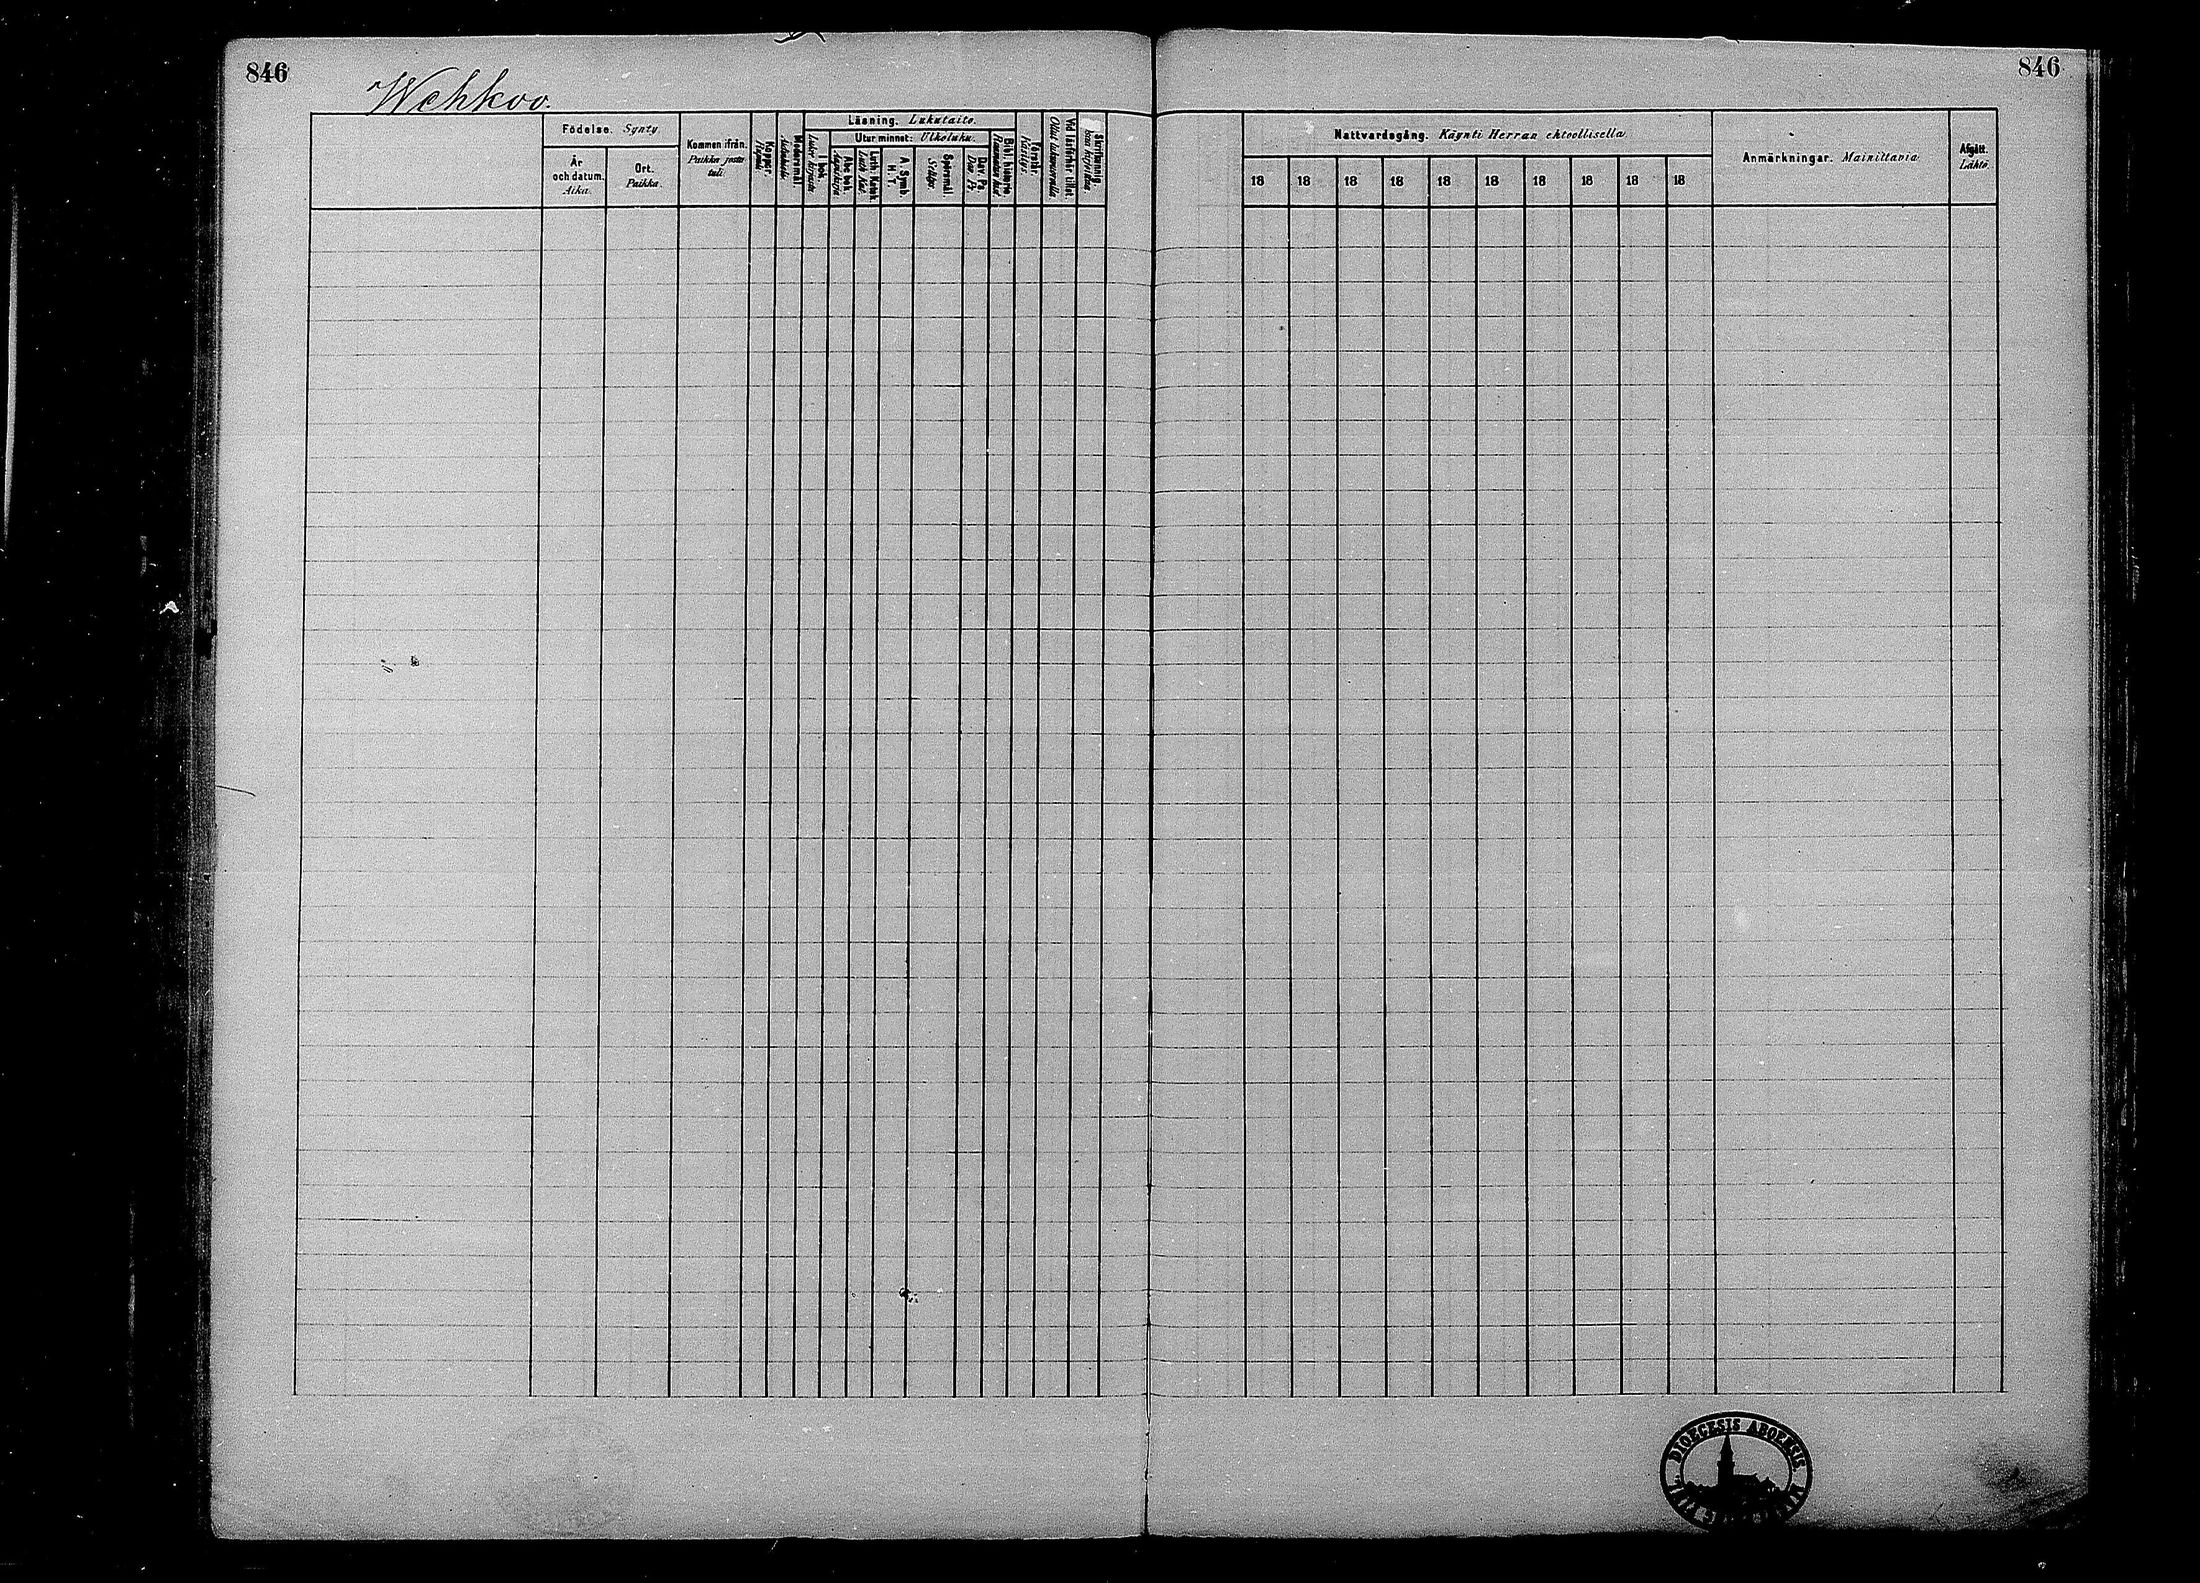 846
846
Wehkoo.
Födelse. Synty.
År och datum. Aika.
Ort. Paikka.
Kommen ifrån. Paikka josta tuli.
Koppor. Rupuli.
Modersmål. Äidinkieli.
Läsning. Lukutaito.
I bok. Luku kirjasta
Utur minnet: Ulkoluku.
Abc bok. Aapiskirja
Luth. Katek. Luth. Kat.
A. Symb. H. T.
Spörsmål.
Dav. Ps. Dav. Ps.
Bibl. historia.
Förstår. Käsitys.
Vid läsförhör tillst. Ollut lukuseuroilla
Skriftermig.
Nattvardsgång. Käynti Herran ehtoollisella
18 18 18 18 18 18 18 18 18 18
Anmärkningar. Mainittavia
Afgått. Lähtö.
DIOECESIS ABOENSIS